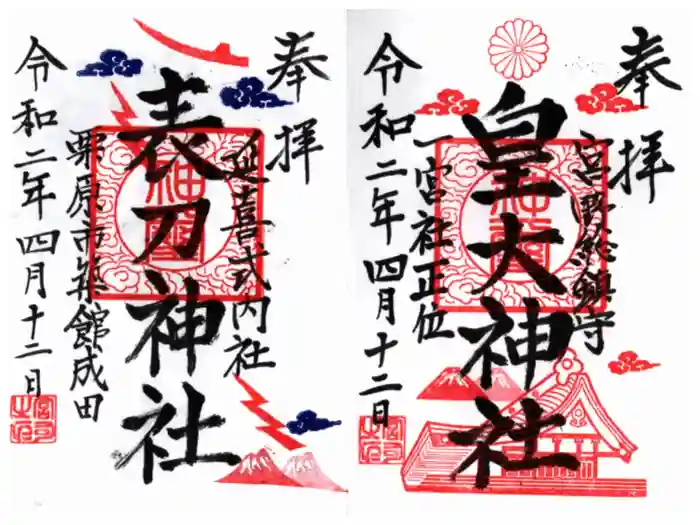 奉拝
延喜式内社
表刀神社
栗原市築館成田
令和二年四月十二日
宮司之印
奉拝
宮野総鎮守
皇大神社
一宮社正位
令和二年四月十二日
宮司之印